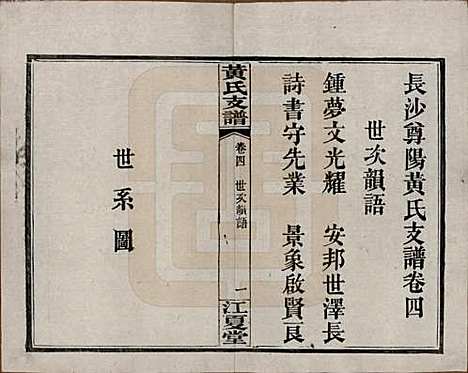 長沙尊陽黃氏支譜卷四
世次韻語
鍾夢文光耀 安邦世澤長
詩書守先業 景象啟賢良
黃氏支譜
卷四 世次韻語
一
江夏堂
世系圖